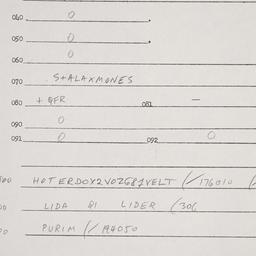 040 0
050 0
060 0
070 S+ALAXMONES
080 + GFR 081 —
090 0
091 0 092 0
HOTERDOY2VOZG81VELT (/176010
LIDA 81 LIDER (306
PURIM (/194050